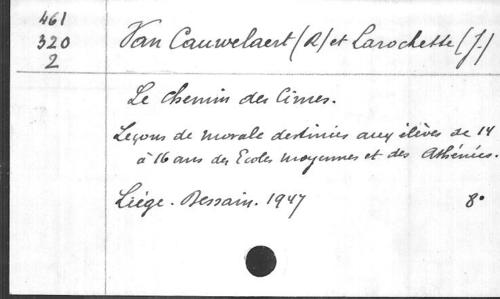 461
320
2
Van Cauwelaert (R) et Larochette (J.)
Le Chemin des Cimes.
Leçons de morale destinées aux élèves de 14
à 16 ans des Ecoles moyennes et des Athénées.
Liége. Dessain. 1947 8°